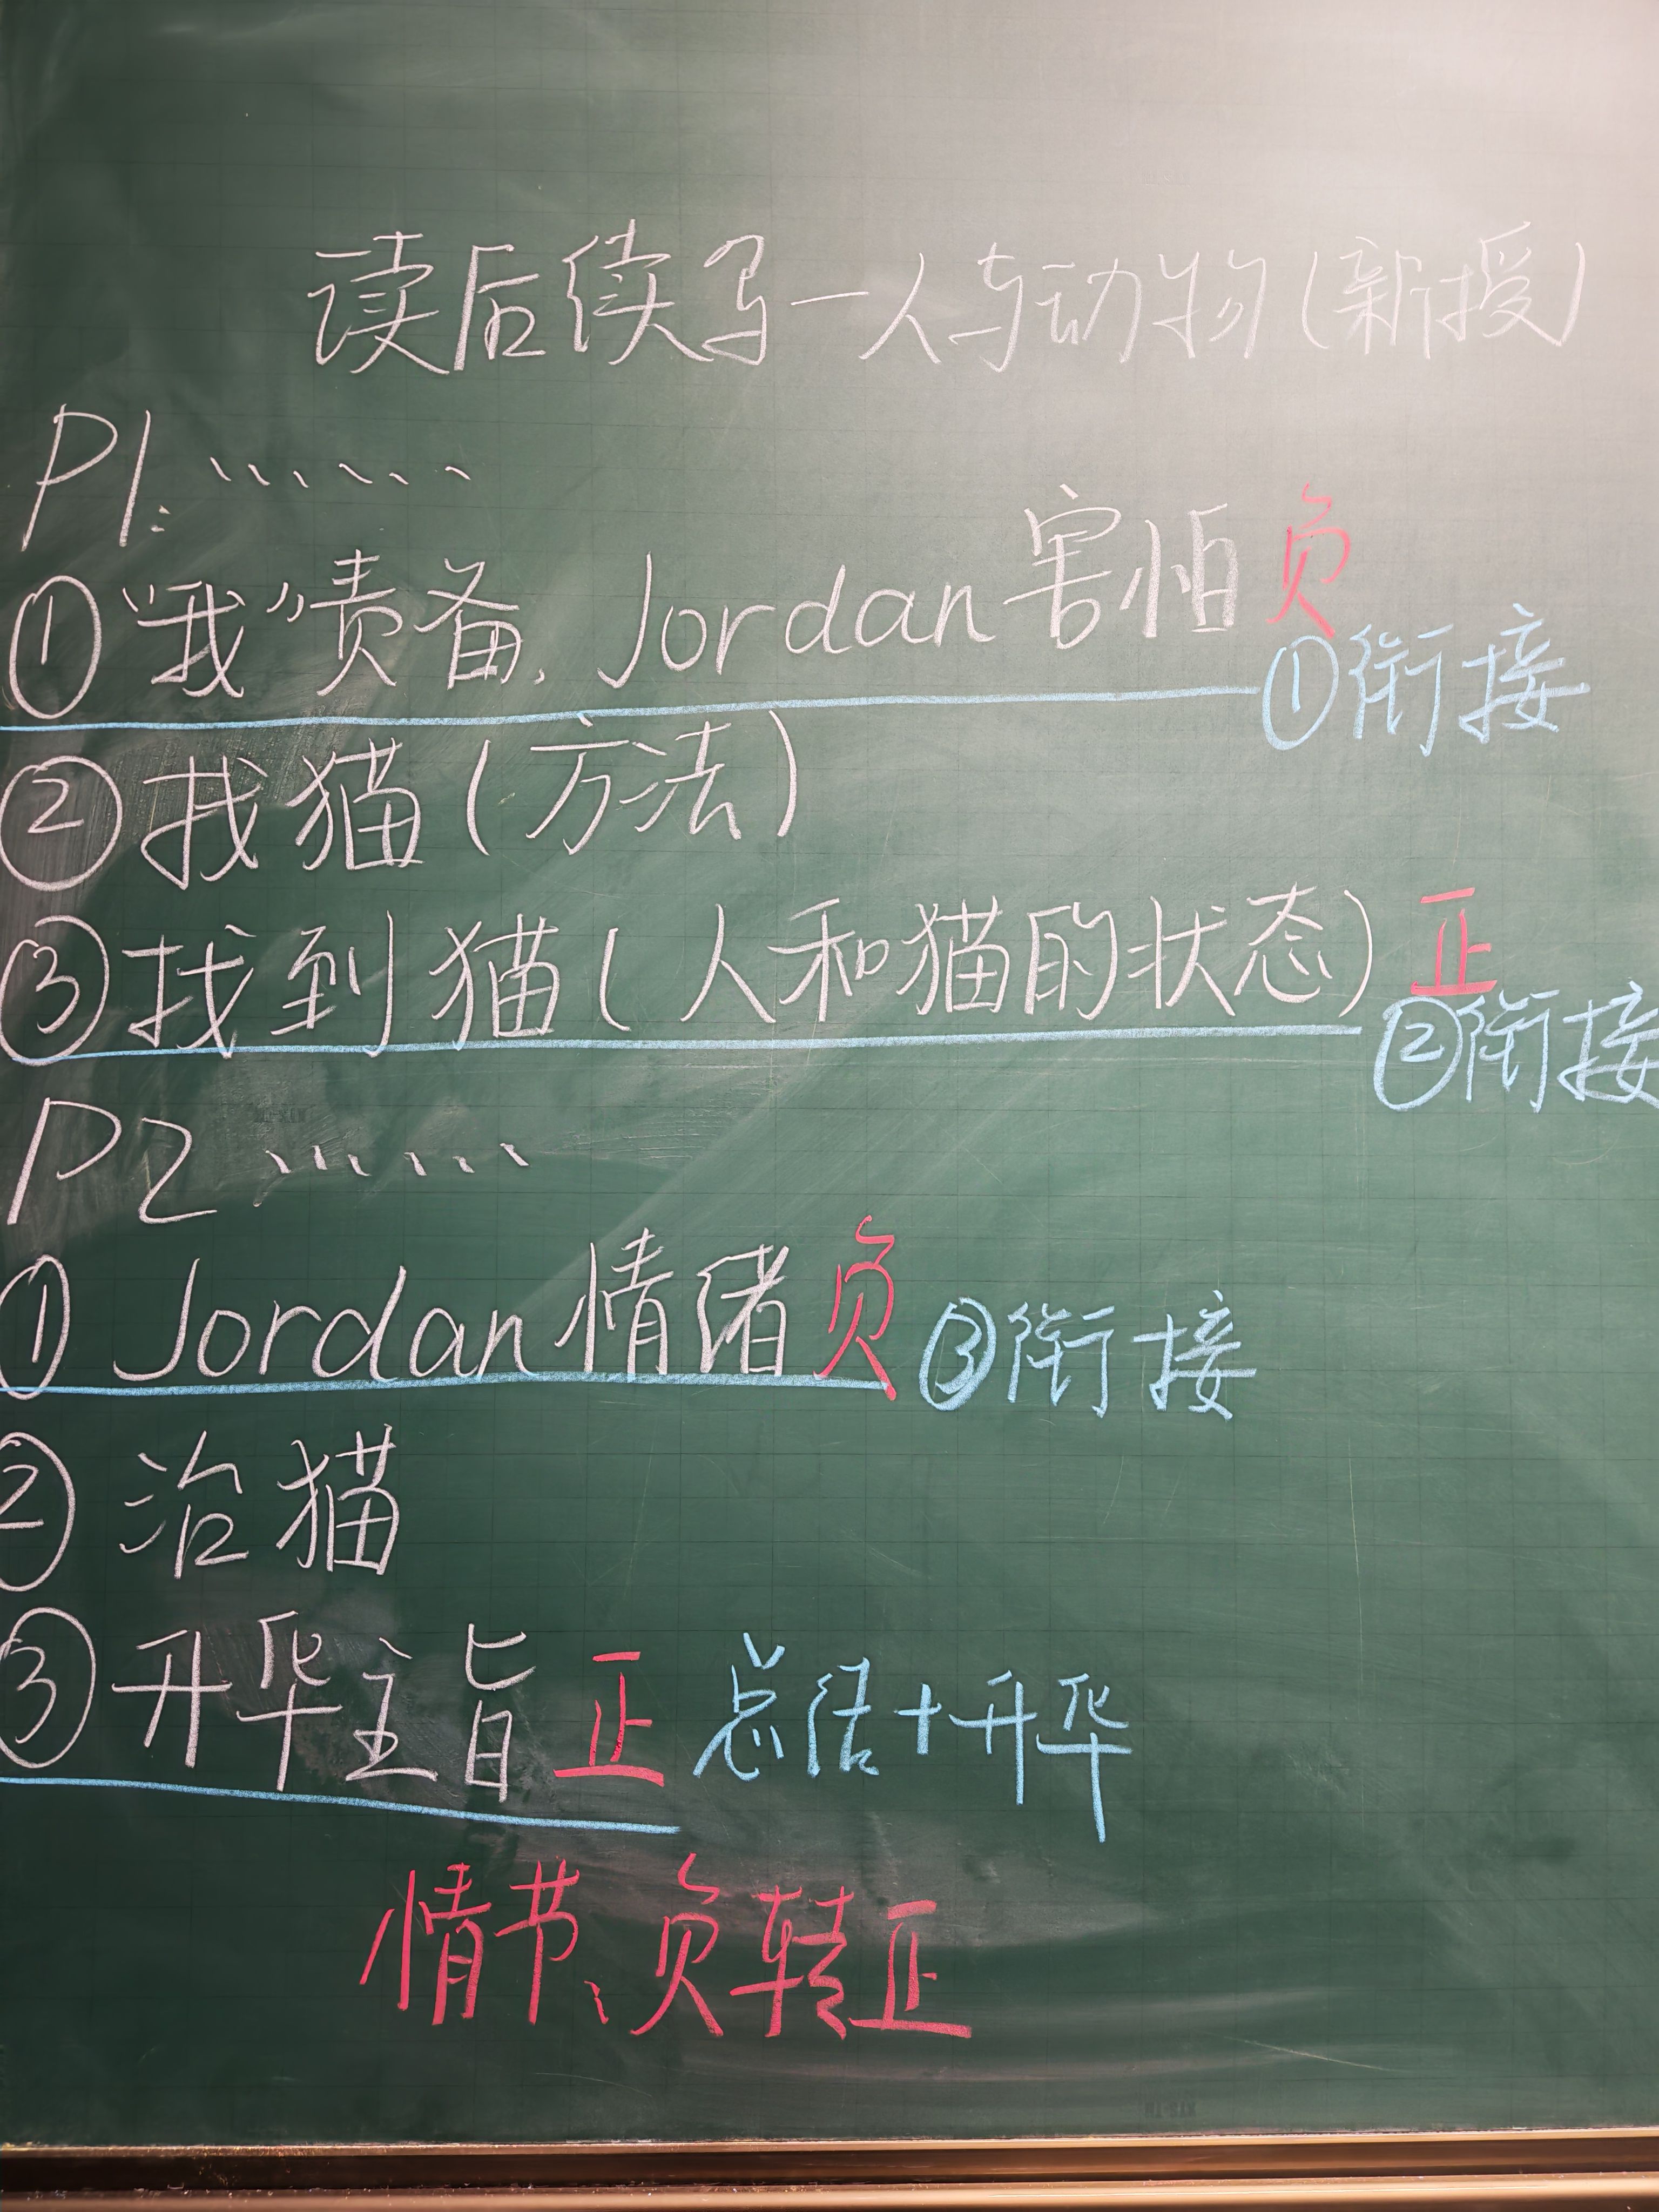 读后续写—人与动物(新授)
P1:……
①"我"责备,Jordan害怕 负
①衔接
②找猫(方法)
③找到猫(人和猫的状态) 正
②衔接
P2……
①Jordan情绪负 ③衔接
②治猫
③升华主旨 正 总结+升华
情节、负转正